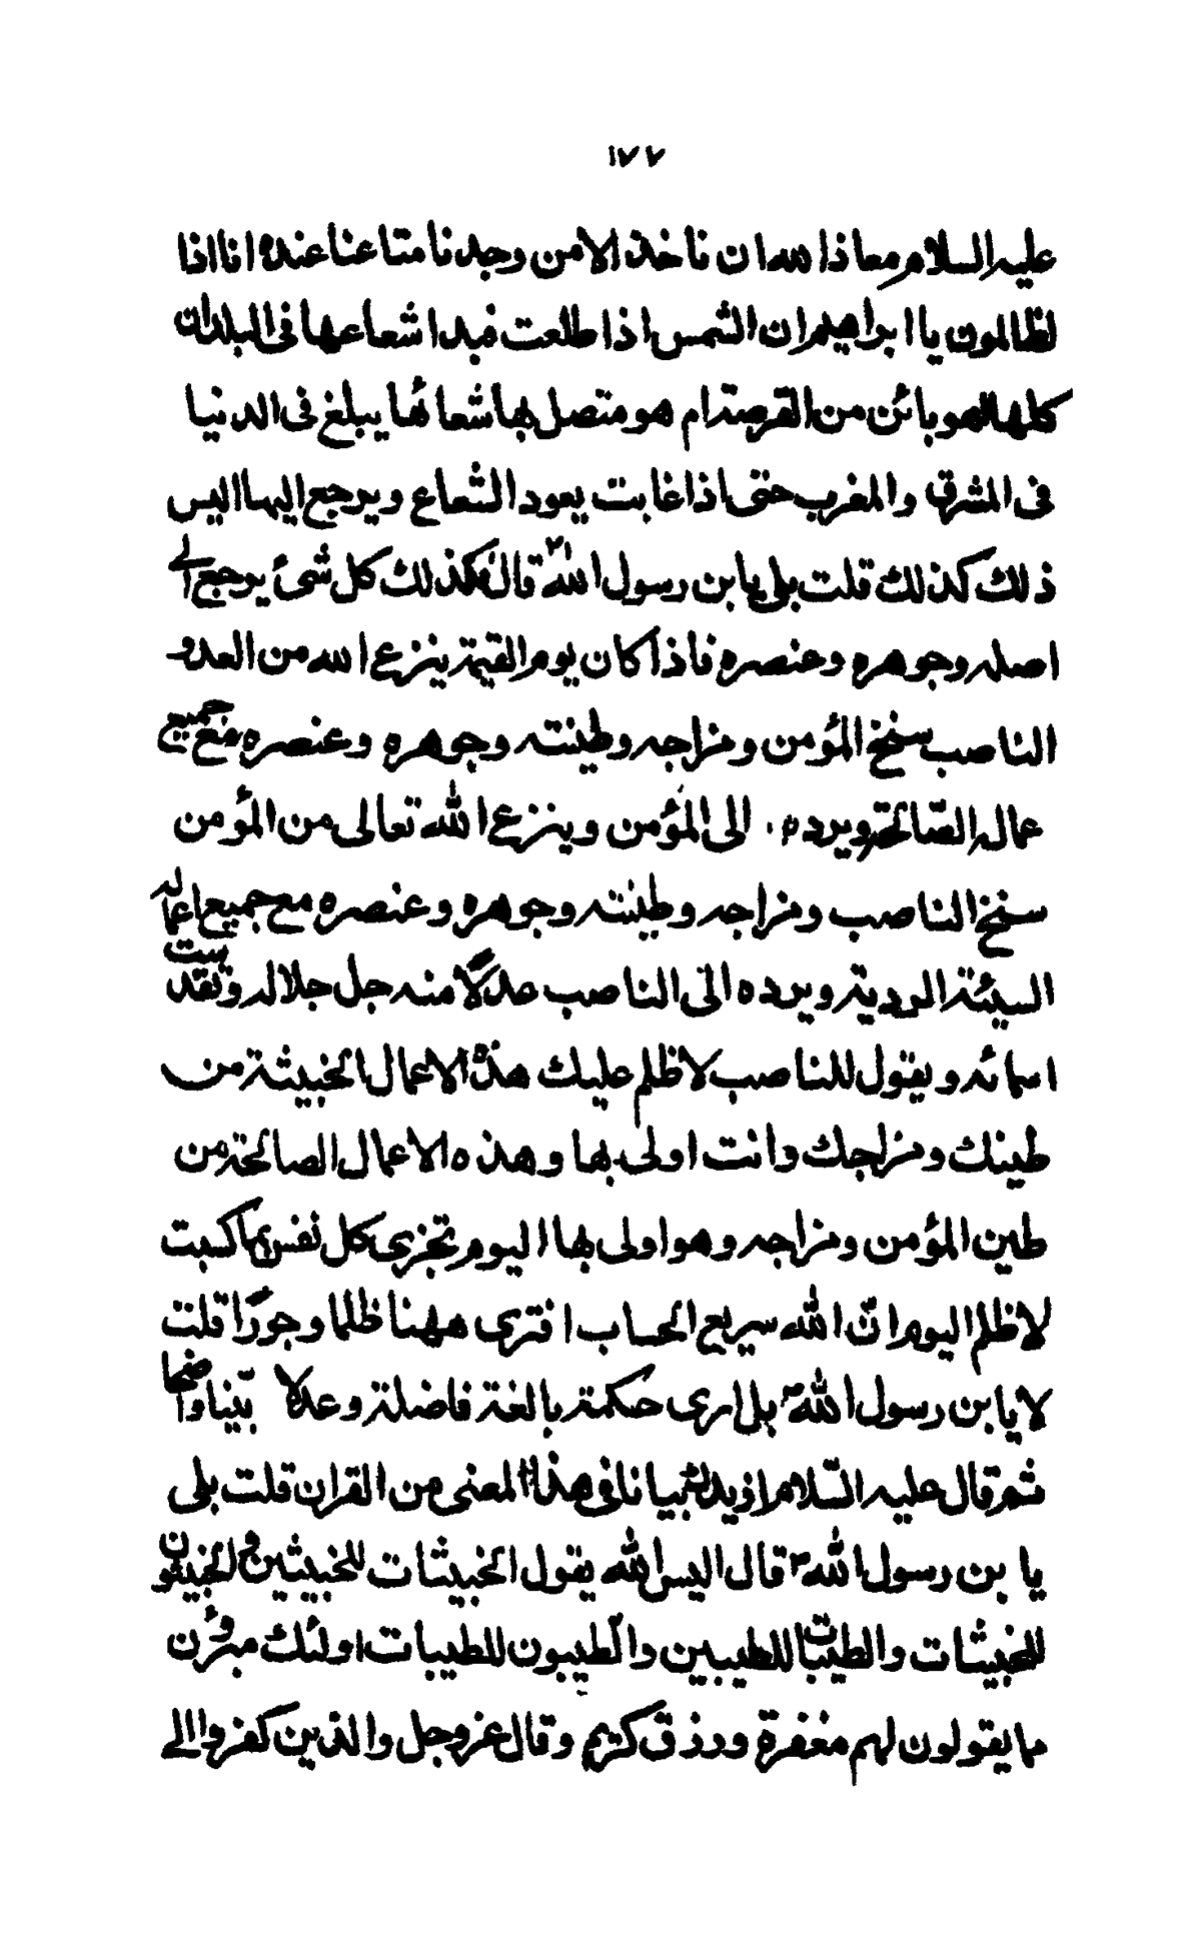 ١٧٧
عليه السلام معاذ الله ان ناخذ الا من وجدنا متاعنا عنده انا اذا
لظالمون يا ابراهيم ان الشمس اذا طلعت فبدا شعاعها فى البلدان
كلها اهو بائن من القرصة ام هو متصل بها شعائها يبلغ فى الدنيا
فى المشرق والمغرب حتى اذا غابت يعود الشعاع ويرجع اليها اليس
ذلك كذلك قلت بلى يابن رسول الله قال فكذلك كل شئ يرجع الى
اصله وجوهره وعنصره فاذا كان يوم القيمة ينزع الله من العدو
الناصب سنخ المؤمن ومزاجه وطينته وجوهره وعنصره مع جميع
عماله الصالحة ويرده الى المؤمن وينزع الله تعالى من المؤمن
سنخ الناصب ومزاجه وطينته وجوهره وعنصره مع جميع اعماله
السيئة الردية ويرده الى الناصب عدلاً منه جل جلاله وتقدست
اسمائه ويقول للناصب لا ظلم عليك هذه الاعمال الخبيثة من
طينك ومزاجك وانت اولى بها وهذه الاعمال الصالحة من
طين المؤمن ومزاجه وهو اولى بها اليوم تجزى كل نفس بما كسبت
لا ظلم اليوم انّ الله سريع الحساب افترى ههنا ظلما وجوراً قلت
لا يابن رسول الله بل ارى حكمة بالغة فاضلة وعدلا بيّنا واضحا
ثم قال عليه السّلام ازيدك بيانا فى هذا المعنى من القران قلت بلى
يا بن رسول الله قال اليس الله يقول الخبيثات للخبيثين والخبيثون
للخبيثات والطيبات للطيبين والطيبون للطيبات اولئك مبرؤن
مما يقولون لهم مغفرة ورزق كريم وقال عزوجل والذين كفروا الى